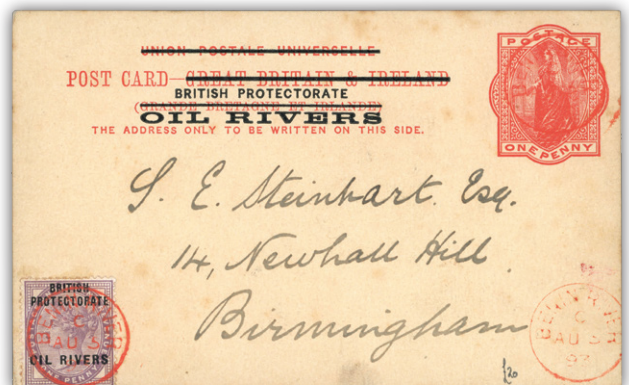 UNION POSTALE UNIVERSELLE
POSTAGE
POST CARD—GREAT BRITAIN & IRELAND
BRITISH PROTECTORATE
(GRANDE BRETAGNE ET IRLANDE)
OIL RIVERS
THE ADDRESS ONLY TO BE WRITTEN ON THIS SIDE.
ONE PENNY
S. E. Steinhart. Esq.
14, Newhall Hill.
Birmingham
BRITISH
PROTECTORATE
C
AU 5
OIL RIVERS
PENNY
C
AU 5
£20